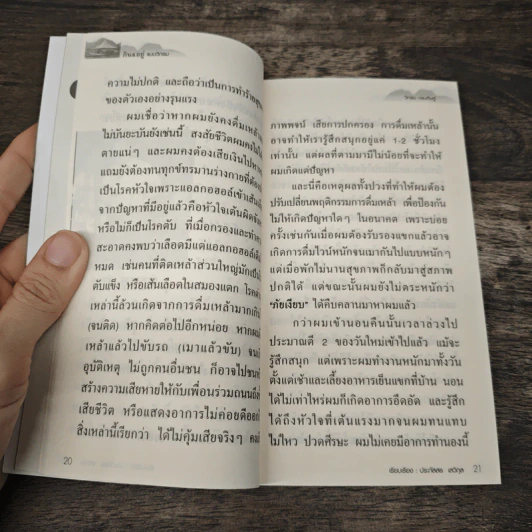 กิน&อยู่ แบบไทย
ความไม่ปกติ และถือว่าเป็นการทำร้าย
ของตัวเองอย่างรุนแรง
ผมเชื่อว่าหากผมยังคงดื่มเหล้า
ไม่บันยะบันยังเช่นนี้ สงสัยชีวิตผมคง
ตายแน่ๆ และผมคงต้องเสียเงินไป
แถมยังต้องทนทุกข์ทรมานร่างกายที่ต้อง
เป็นโรคหัวใจเพราะแอลกอฮอล์เข้าเส้น
จากปัญหาที่มีอยู่แล้วคือหัวใจเต้นผิด
หรือไม่ก็เป็นโรคตับ ที่เมื่อกรองและทำ
สะอาดคงพบว่าเลือดมีแต่แอลกอฮอล์
หมด เช่นคนที่ติดเหล้าส่วนใหญ่มักเป็น
ตับแข็ง หรือเส้นเลือดในสมองแตก
เหล่านี้ล้วนเกิดจากการดื่มเหล้ามากเกิน
(จนติด) หากคิดต่อไปอีกหน่อย หากผม
เหล้าแล้วไปขับรถ (เมาแล้วขับ)
อุบัติเหตุ ไม่ถูกคนอื่นชน ก็อาจไปชน
สร้างความเสียหายให้กับเพื่อนร่วมถนน
เสียชีวิต หรือแสดงอาการไม่ค่อยดีออก
สิ่งเหล่านี้เรียกว่า ได้ไม่คุ้มเสียจริงๆ
20
ภาพพจน์ เสียการปกครอง การดื่มเหล้านั้น
อาจทำให้เรารู้สึกสนุกอยู่แค่ 1-2 ชั่วโมง
เท่านั้น แต่ผลที่ตามมามีไม่น้อยที่จะทำให้
ผมเกิดแต่ปัญหา
และนี่คือเหตุผลทั้งปวงที่ทำให้ผมต้อง
ปรับเปลี่ยนพฤติกรรมการดื่มเหล้า เพื่อป้องกัน
ไม่ให้เกิดปัญหาใดๆ ในอนาคต เพราะบ่อย
ครั้งเช่นกันเมื่อผมต้องรับรองแขกแล้วอาจ
เกิดการดื่มไวน์หนักจนเมากันไปแบบหนักๆ
แต่เมื่อพักไม่นานสุขภาพก็กลับมาสู่สภาพ
ปกติได้ แต่ขณะนั้นผมยังไม่ตระหนักว่า
"ภัยเงียบ" ได้คืบคลานมาหาผมแล้ว
กว่าผมเข้านอนคืนนั้นเวลาล่วงไป
ประมาณตี 2 ของวันใหม่เข้าไปแล้ว แม้จะ
รู้สึกสนุก แต่เพราะผมทำงานหนักมาทั้งวัน
ตั้งแต่เช้าและเลี้ยงอาหารเย็นแขกที่บ้าน นอน
ได้ไม่เท่าไหร่ผมก็เกิดอาการอึดอัด และรู้สึก
ได้ถึงหัวใจที่เต้นแรงมากจนผมทนแทบ
ไม่ไหว ปวดศีรษะ ผมไม่เคยมีอาการทำนองนี้
เรียบเรียง : ประภัสสร เสวิกุล 21